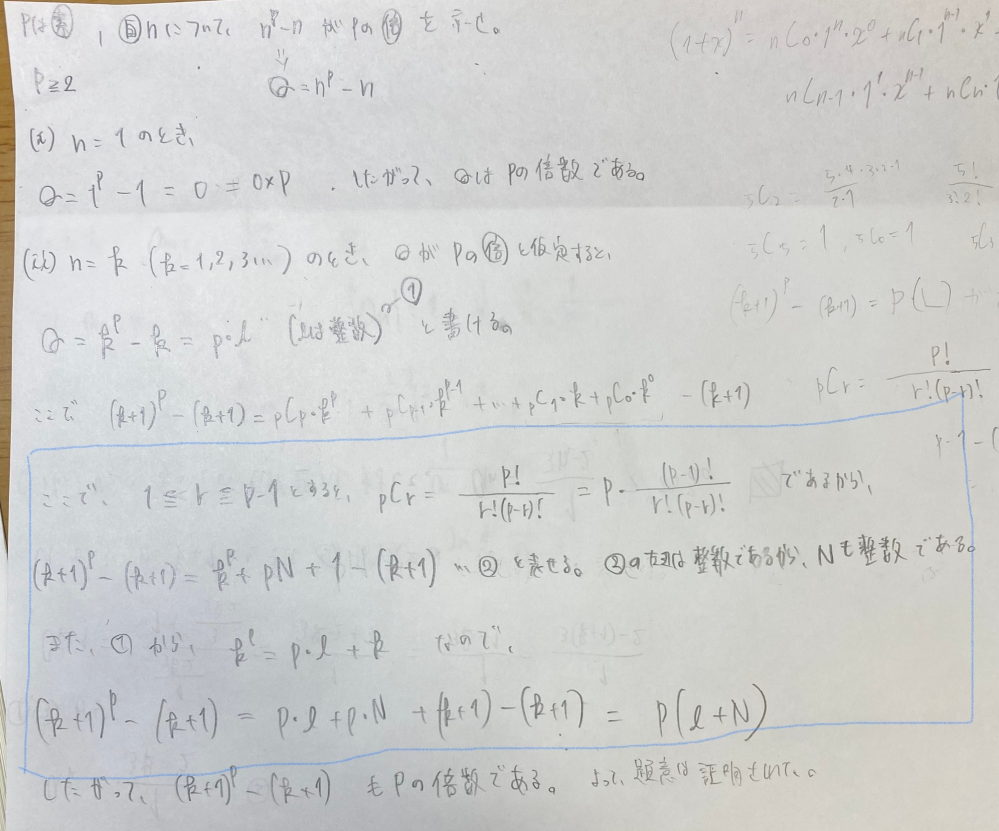 Pは素, 自nについて, n^p-nがPの倍を示せ。
(1+x)^n = nC0・1^n・x^0 + nC1・1^(n-1)・x^1
P≧2
Q = n^p - n
nCn-1・1^1・x^(n-1) + nCn・1
(i) n = 1のとき、
Q = 1^p - 1 = 0 = 0×P . したがって、QはPの倍数である。
5C2 = 5・4・3・2・1 / 2・1 5! / 3!2!
5C5 = 1 , 5C0 = 1 5C3
(ii) n = k (k = 1, 2, 3…) のとき、QがPの倍と仮定すると、
(k+1)^p - (k+1) = p( )
Q = k^p - k = p・l (lは整数) ① と書ける。
ここで (k+1)^p - (k+1) = pCp・k^p + pCp-1・k^(p-1) + … + pC1・k + pC0・k^0 - (k+1)
pCr = p! / r!(p-r)!
ここで、1 ≦ r ≦ p-1とすると、pCr = p! / r!(p-r)! = p・(p-1)! / r!(p-r)! であるから、
(k+1)^p - (k+1) = k^p + pN + 1 - (k+1) … ② と表せる。②の左辺は整数であるから、Nも整数である。
また、①から、k^p = p・l + k なので、
(k+1)^p - (k+1) = p・l + p・N + (k+1) - (k+1) = p(l+N)
したがって、(k+1)^p - (k+1) もPの倍数である。よって、題意は証明された。